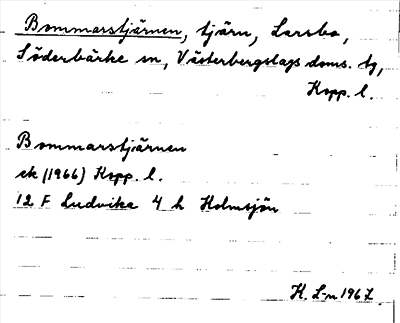 Bommarstjärnen, tjärn, Larsbo,
Söderbärke sn, Västerbergslags doms. tg,
Kopp. l.
Bommarstjärnen
ek (1966) Kopp. l.
12 F Ludvika 4 h Holmsjön
H. L-n 1967.